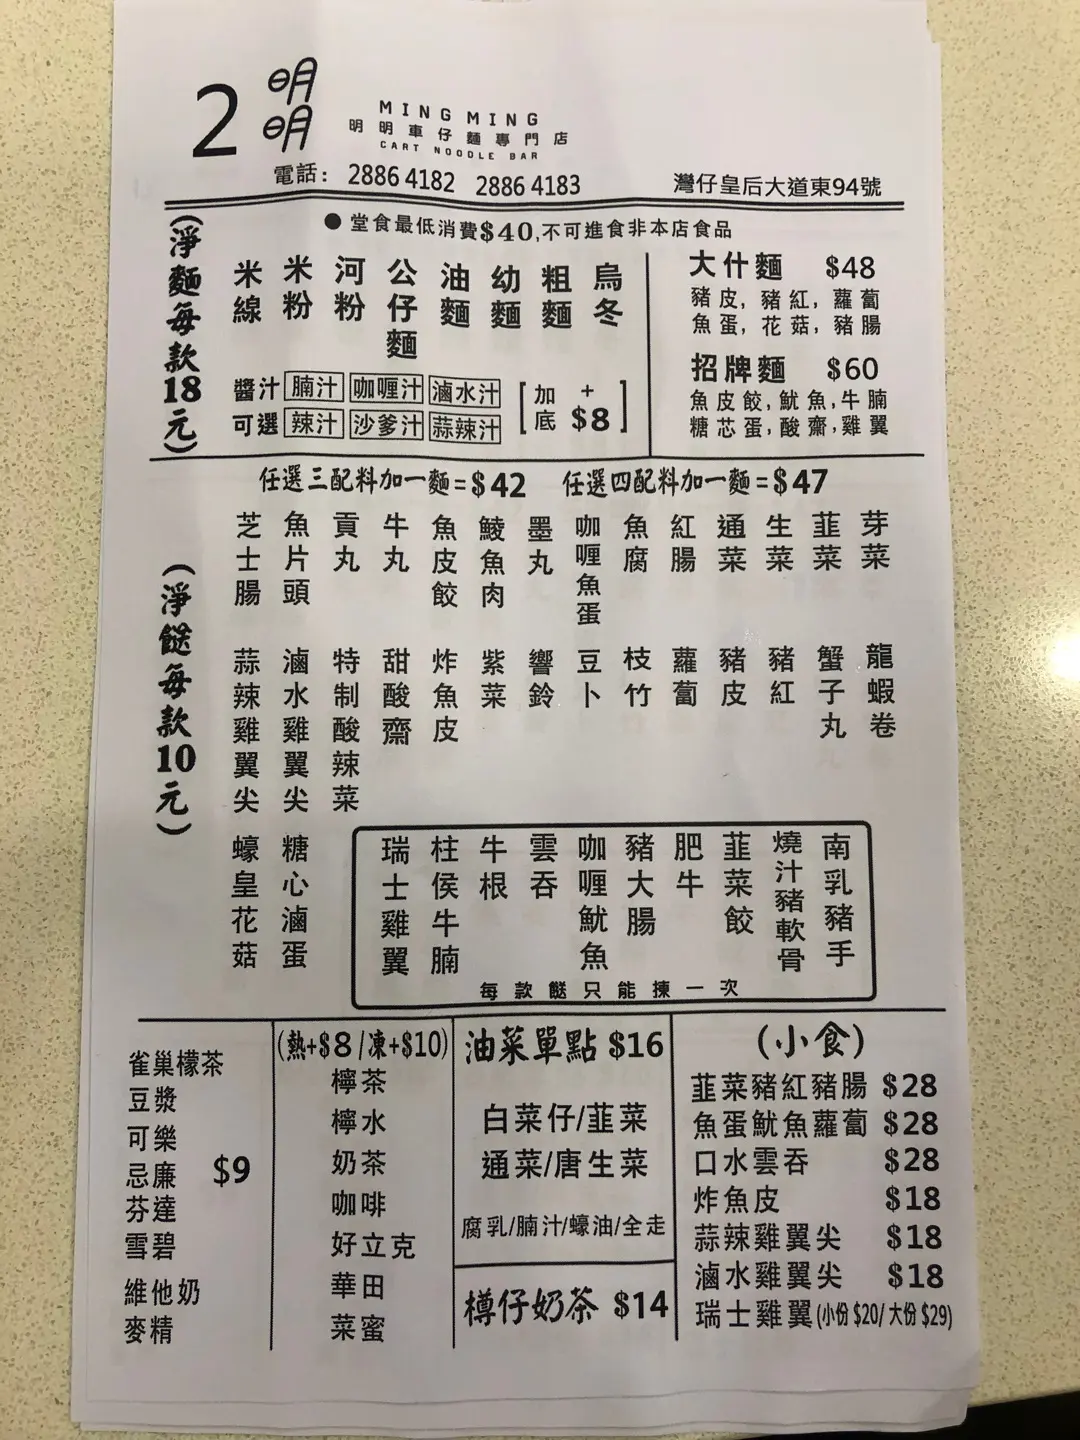 2 明明
MING MING
明明車仔麵專門店
CART NOODLE BAR
電話： 2886 4182 2886 4183
灣仔皇后大道東94號
● 堂食最低消費$40,不可進食非本店食品
(淨麵每款18元)
米線 米粉 河粉 公仔麵 油麵 幼麵 粗麵 烏冬
醬汁 腩汁 咖喱汁 滷水汁
可選 辣汁 沙爹汁 蒜辣汁
[加底 +$8]
大什麵 $48
豬皮, 豬紅, 蘿蔔
魚蛋, 花菇, 豬腸
招牌麵 $60
魚皮餃,魷魚,牛腩
糖芯蛋,酸齋,雞翼
任選三配料加一麵=$42 任選四配料加一麵=$47
(淨餸每款10元)
芝士腸 魚片頭 貢丸 牛丸 魚皮餃 鯪魚肉 墨丸 咖喱魚蛋 魚腐 紅腸 通菜 生菜 韮菜 芽菜
蒜辣雞翼尖 滷水雞翼尖 特制酸辣菜 甜酸齋 炸魚皮 紫菜 響鈴 豆卜 枝竹 蘿蔔 豬皮 豬紅 蟹子丸 龍蝦卷
蠔皇花菇 糖心滷蛋 瑞士雞翼 柱侯牛腩 牛根 雲吞 咖喱魷魚 豬大腸 肥牛 韮菜餃 燒汁豬軟骨 南乳豬手
每款餸只能揀一次
雀巢檬茶
豆漿
可樂
忌廉 $9
芬達
雪碧
維他奶
麥精
(熱+$8/凍+$10)
檸茶
檸水
奶茶
咖啡
好立克
華田
菜蜜
油菜單點 $16
白菜仔/韮菜
通菜/唐生菜
腐乳/腩汁/蠔油/全走
樽仔奶茶 $14
(小食)
韮菜豬紅豬腸 $28
魚蛋魷魚蘿蔔 $28
口水雲吞 $28
炸魚皮 $18
蒜辣雞翼尖 $18
滷水雞翼尖 $18
瑞士雞翼(小份 $20/大份 $29)